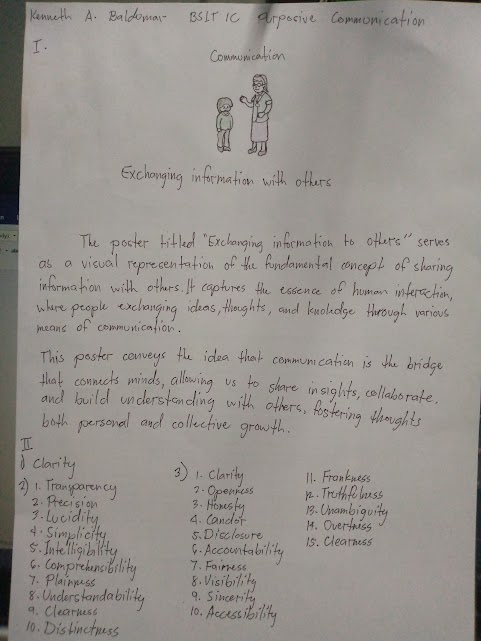 Kenneth A. Baldomar BSIT 1C Purposive Communication
I.
Communication
Exchanging information with others
The poster titled "Exchanging information to others" serves
as a visual representation of the fundamental concept of sharing
information with others. It captures the essence of human interaction,
where people exchanging ideas, thoughts, and knolidge through various
means of communication.
This poster conveys the idea that communication is the bridge
that connects minds, allowing us to share insights, collaborate,
and build understanding with others, fostering thoughts
both personal and collective growth.
II
1) Clarity
2) 1. Transparency
2. Precision
3. Lucidity
4. Simplicity
5. Intelligibality
6. Comprehensibility
7. Plainness
8. Understandability
9. Clearness
10. Distinctness
3) 1. Clarity
2. Openness
3. Honesty
4. Candor
5. Disclosure
6. Accountability
7. Fairness
8. Visibility
9. Sincerity
10. Accessibility
11. Frankness
12. Truthfulness
13. Unambiguity
14. Overtness
15. Clearness